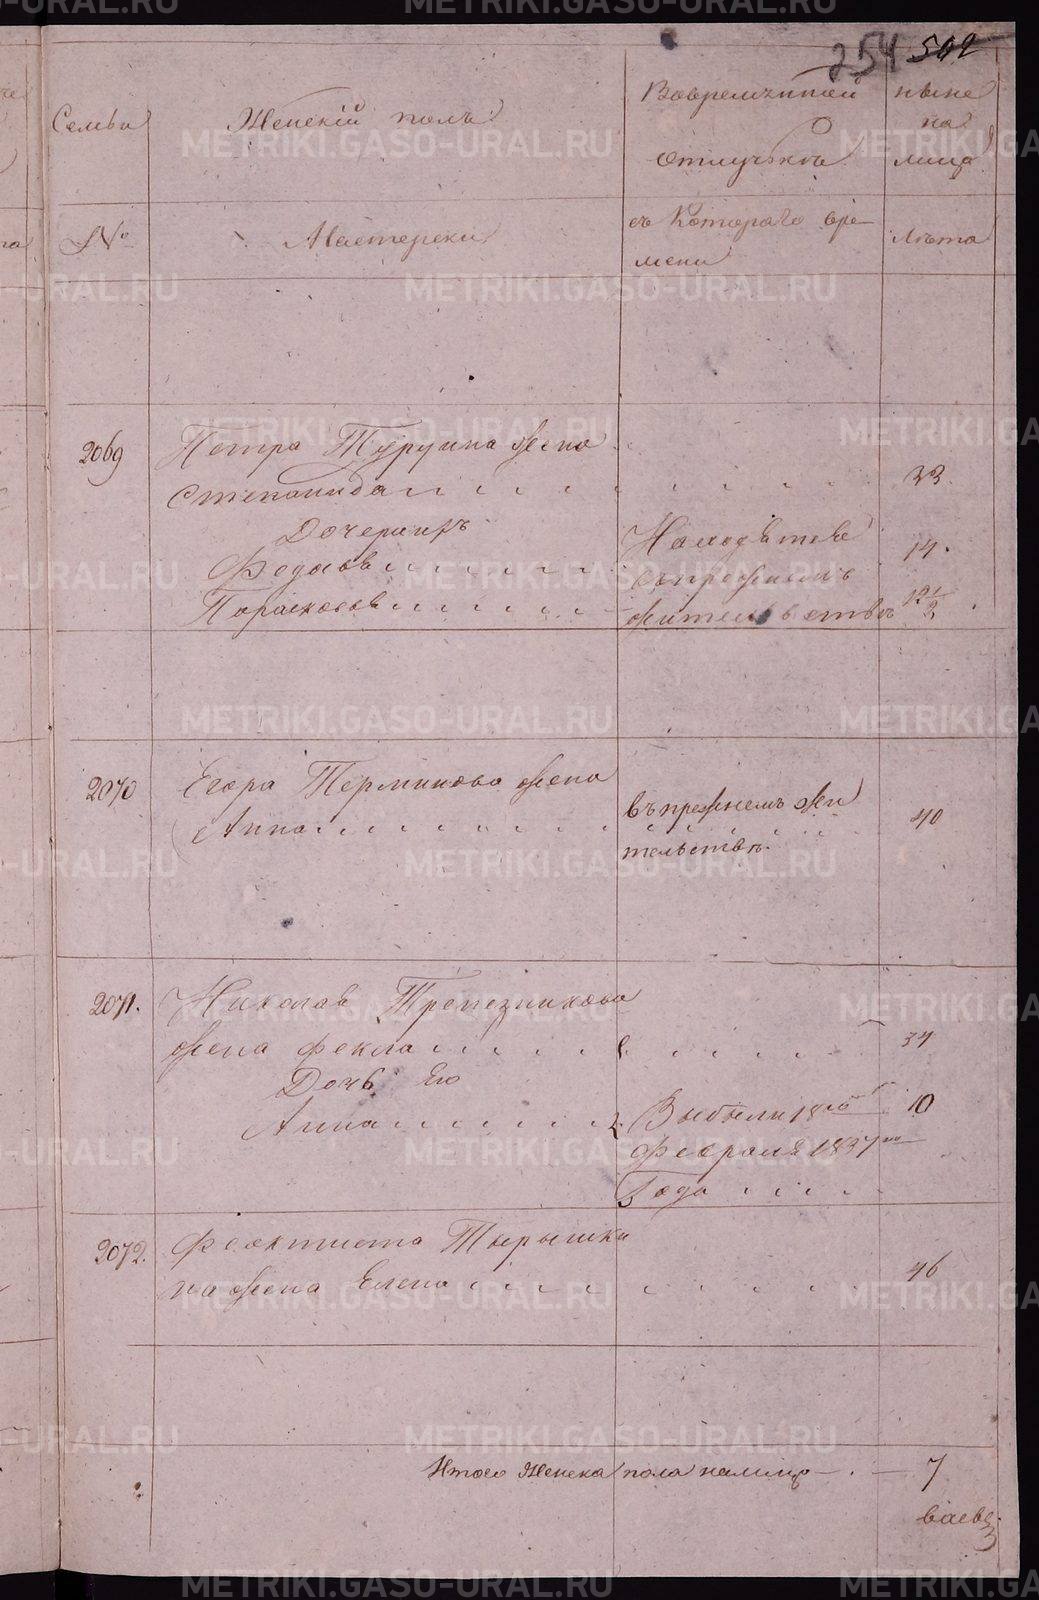 254 502
Семьи
Женскій полъ
Вовременной
отлучькѣ
ныне
на
лицо
№
Мастерски
съ Котораго вре-
мени
лѣта
2069
Петра Туруина жена
Степанида
33
Дочери ихъ
Федосья
14.
Парасковья
12 1/2
Находятся
въ прежнемъ
жительствѣ
2070
Егора Терминова жена
Анна
въ прежнемъ жи
тельствѣ.
40
2071.
Николая Трепезникова
жена фекла
34
Дочь Его
Анна
Выбыли
февраля 1837го
Года
10
2072.
Феоктиста Тырышки
на жена Елена
46
Итого Женска пола налицо
7
METRIKI.GASO-URAL.RU